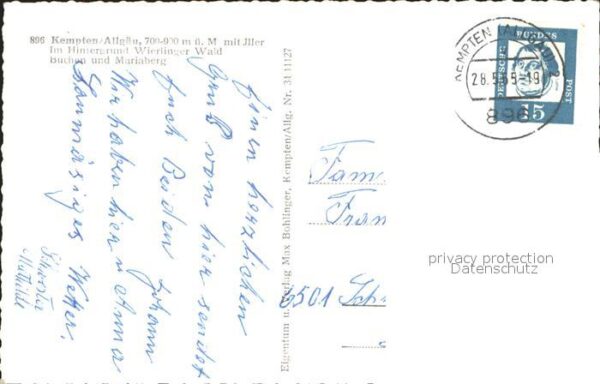 896 Kempten/Allgäu, 700-900 m ü. M mit Jller
Im Hintergrund Wierlinger Wald
Buchen und Mariaberg
Einen herzlichen
Gruß von hier sendet
Euch Beiden Johann
Wir haben hier
Wetter.
Schwester
Mathilde
Eigentum u. Verlag Max Bohlinger, Kempten/Allg. Nr. 31 11127
KEMPTEN (ALLGÄU) 2
28.5.65-19
896
DEUTSCHE
BUNDES
POST
15
Fam
Fran
6501 Sch
privacy protection
Datenschutz